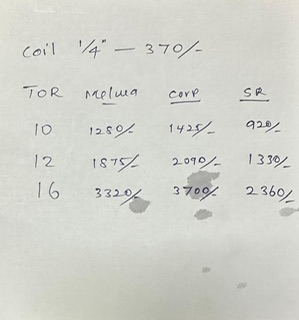 coil 1/4" — 370/-
TOR Melwa Corp SR
10 1280/- 1425/- 920/-
12 1875/- 2090/- 1330/-
16 3320/- 3700/- 2360/-